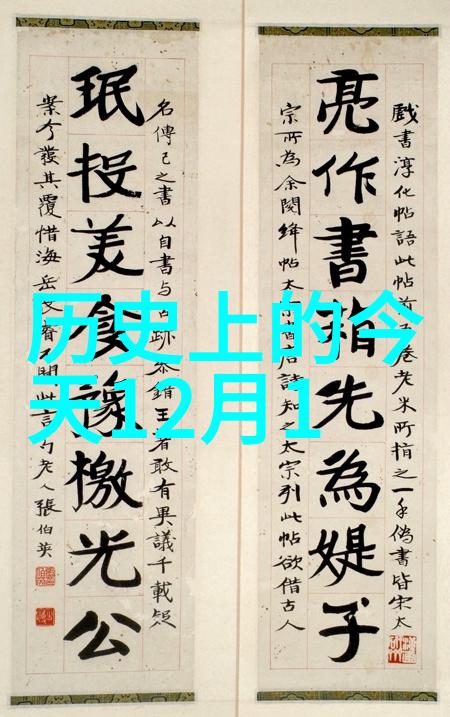 历史上的今
天12月1
亮作書先為媞子
戲書淳化帖語此帖前卷老米所指之一手偽書皆宋太
宗所為余閱絳帖太知之太宗列此帖欲借古人
珉投美豫檄光公
名傳己之書以自書与跡錯王著敢有異議千載疑
案今發其覆惜海岳此言老人張伯英